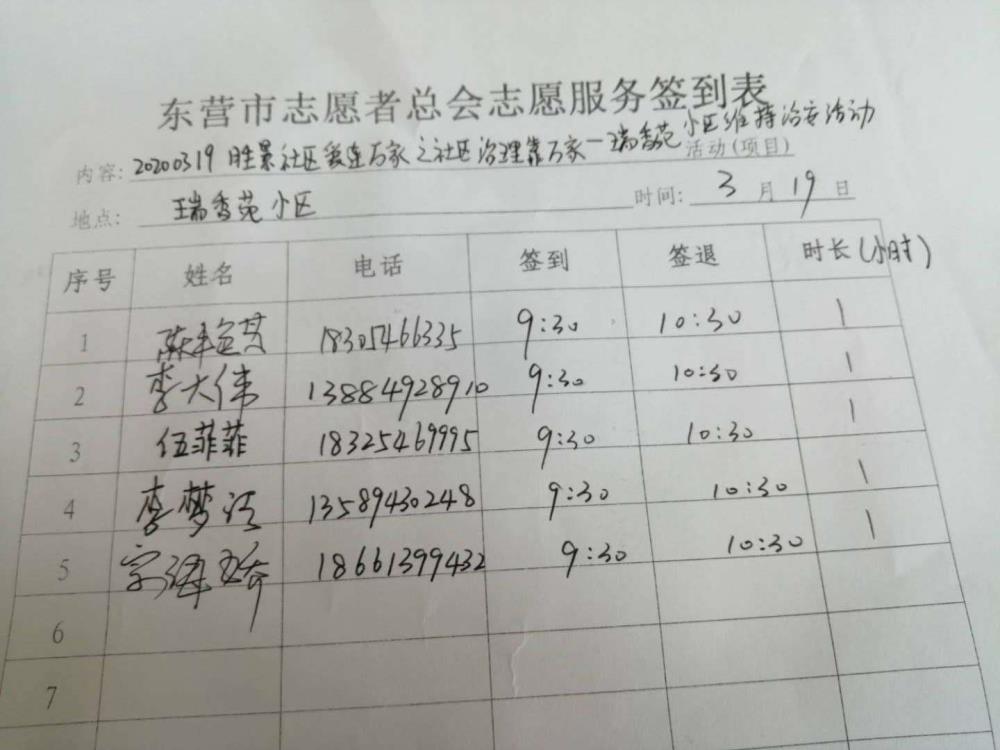 东营市志愿者总会志愿服务签到表
内容: 20200319 胜景社区爱连万家之社区治理靠万家一瑞香苑小区维持治安活动 活动(项目)
地点: 瑞香苑小区 时间: 3 月 19 日
序号 姓名 电话 签到 签退 时长(小时)
1 18305466335 9:30 10:30 1
2 李大伟 13884928910 9:30 10:30 1
3 伍菲菲 18325469995 9:30 10:30 1
4 李梦 13589430248 9:30 10:30 1
5 18661399432 9:30 10:30 1
6
7